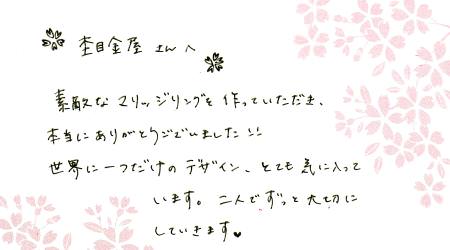 杢目金屋 さんへ
素敵な マリッジリングを 作っていただき、
本当に ありがとうございました!!
世界に 一つだけの デザイン、とても 気に入って
います。二人で ずっと 大切に
していきます♥